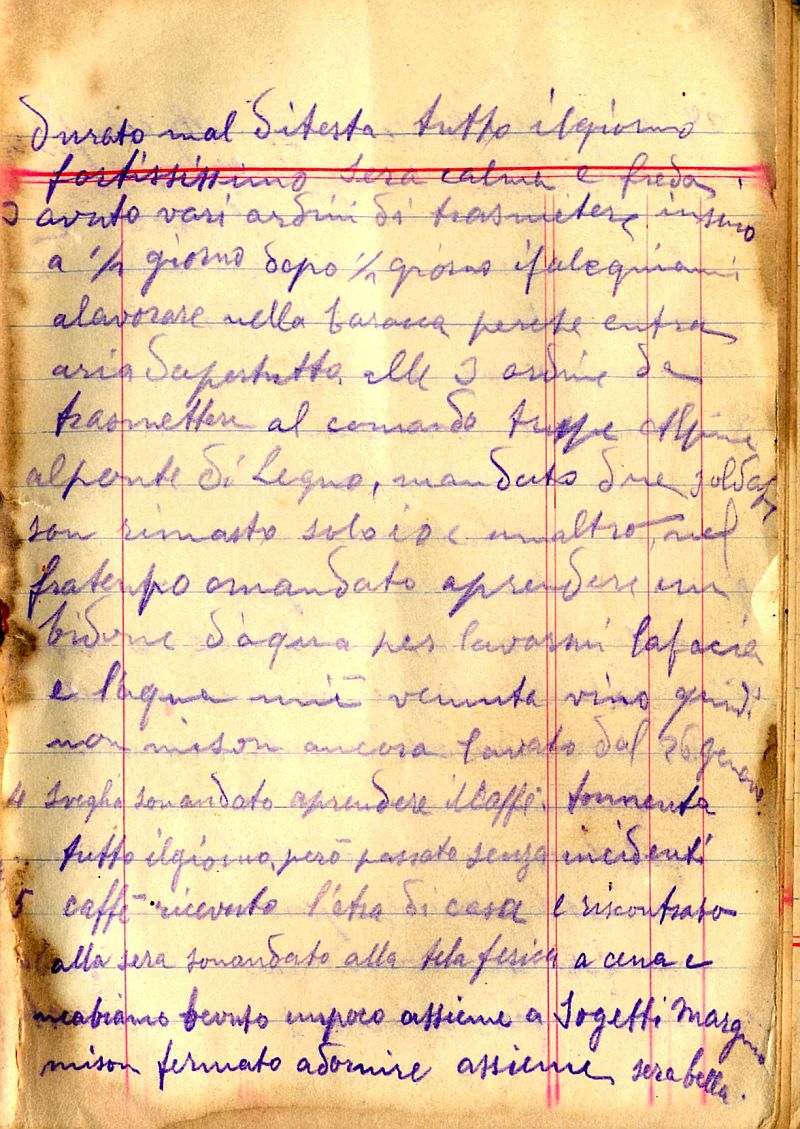 durato mal ditesta tutto ilgiorno
fortississimo sera calma e freda
3 avuto vari ordini di trasmetere insino
a 1/2 giorno dopo 1/2 giorno
alavorare nella baracca perete entra
aria dapertutto alle 3 ordine da
trasmettere al comando truppe Alpine
alponte di Legno, mandato due soldati
son rimasto solo io e unaltro, nel
fratempo omandato aprendere un
bidone d'aqua per lavarmi lafacia
e l'aqua miè venuta vino quindi
non mison ancora lavato dal 26 genaio
4 sveglia sonandato aprendere il Caffè. tormenta
tutto ilgiorno, però passato senza incidenti
5 caffè ricevuto l'etra di casa e riscontrato
alla sera sonandato alla telafesica a cena e
neabiamo bevuto unpoco assieme a Sogetti
mison fermato adormire assieme, sera bella.